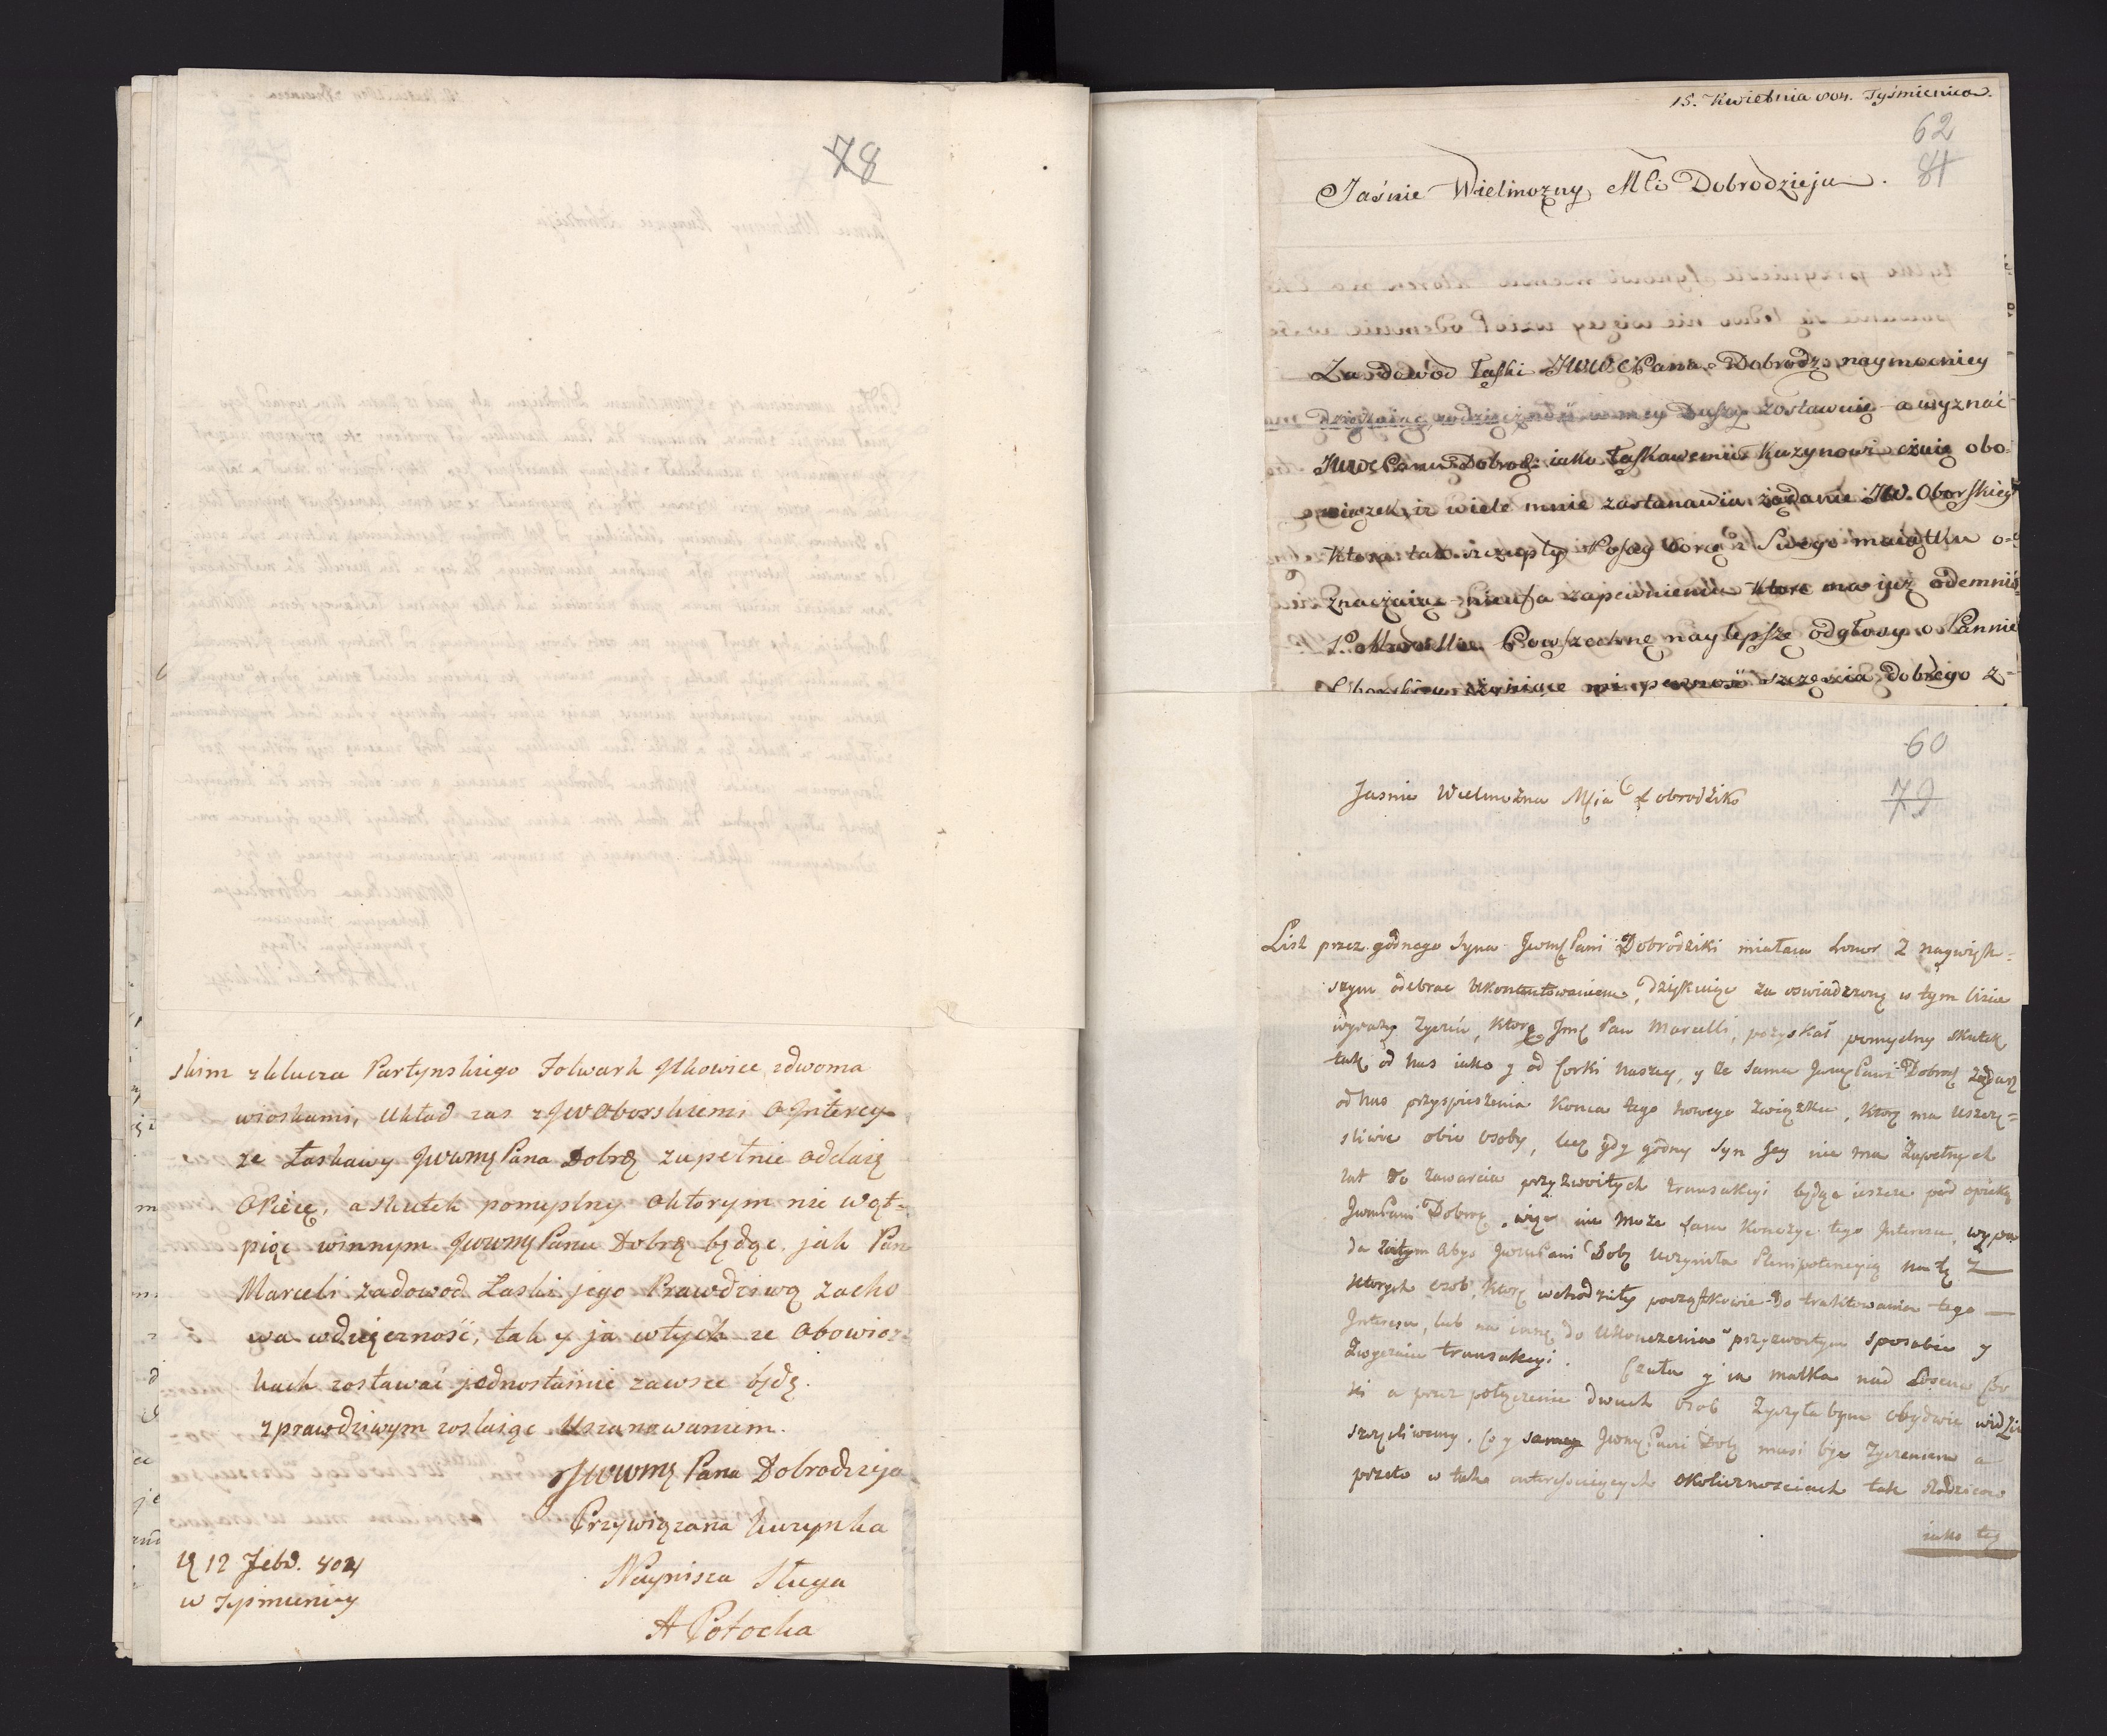 78
skim z klucza Partynskiego Folwark Ilkowice z dwoma
wioskami, Układ zas z JW Oborskiemi o Interes
ze Łaskawy JWWMę Pana Dobrę zupełnie oddaię
Opiece, a skutek pomyslny o ktorym nie wąt-
pię winnym JWWMę Panu Dobrę będąc jak Pan
Marceli za dowod Łaski jego Prawdziwą zacho
wa wdzięczność, tak y ja w tych ze Obowiąz-
kach zostawać jednostainie zawsze będę.
z prawdziwym zostaiąc Uszanowaniem.
JWWMę Pana Dobrodzieja
Przywiązana kuzynka
Nayniższa Sługa
A Potocka
12 Febr. 804
w Tysmienicy
15. Kwietnia 804. Tyśmienica.
62
81
Jaśnie Wielmożny Mći Dobrodzieju.
Za dowod Łaski JWWć Pana Dobrodz. naymocniey
Duszy zostawuię a wyznać
JWWć Panu Dobrodz. iako Łaskawemu Kuzynowi czuię obo-
wiązek, iż wiele mnie zastanawia żądanie JW. Oborskiego
ktora tak szczupły Posag Corę z Swego maiątku o-
znaczaiąc nieufa zapewnieniu ktore ma iuż odemnie
Powszechne naylepsze odgłosy o Pannie
szczęścia dobrego z-
60
79
Jasnie Wielmożna Mcia Dobrodziko
List przez godnego Syna JWMę Pani Dobrodziki miałam honor z naywięk-
szym odebrac Ukontentowaniem, Dziękuię za oswiadczoną w tym liscie
wyrazy Zyczeń, ktorą Jmę Pan Marcelli, pozyskał pomyslny skutek
tak od Nas iako y od Corki Naszey, y ze sama JWMę Pani Dobrodz żądasz
od Nas przyspieszenia Konca tego nowego Związku, ktory ma Uszczę-
sliwic obie Osoby, lecz gdy godny Syn Jey nie ma Zupełnych
lat do zawarcia przyzwoitych transakcyi będąc ieszcze pod opieką
JWMPani Dobrę, więc nie może sam Konczyc tego Interesu, wypa
da zatym Abys JWMPani Dobę Uczyniła Plenipotencyię na tę Z
ktorych osob, ktore wchodziły początkowie do traktowania tego
Interesu, lub na inną do Ukonczenia przyzwoitym sposobem y
Zwyczaiu transakcyi. Czuła y ia matka nad Losem Cor
ki a przez połączenie dwuch Osob Zyczyła bym obydwie widzić
szczęśliwemy. Co y samey JWMę Pani Dobę musi byc Zyczeniem a
przeto w tak interessuiących okolicznosciach tak Rodzicow
iako też